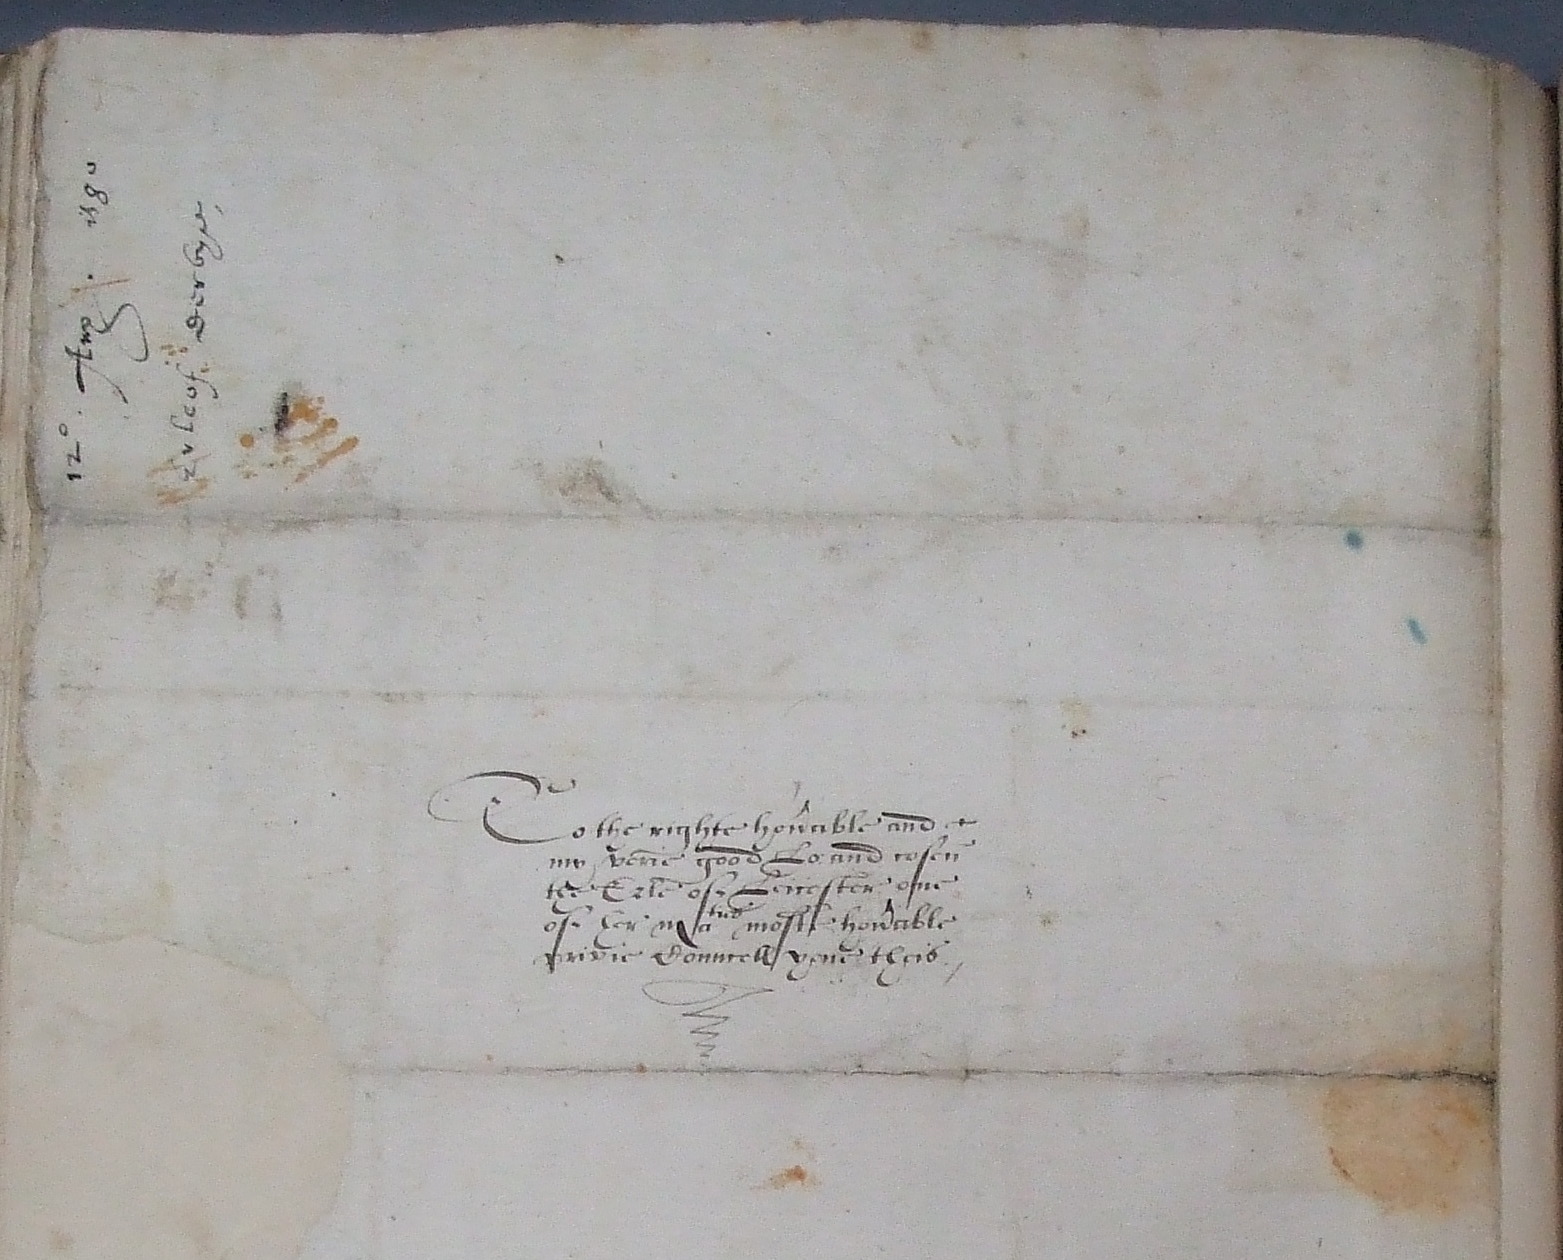 12º Aug. 1580
Erle of Derbye,
To the righte honable and
my verie good Lo: and cosen
the Erle of Leicester one
of her Matis moste honable
privie Councell yeue theis